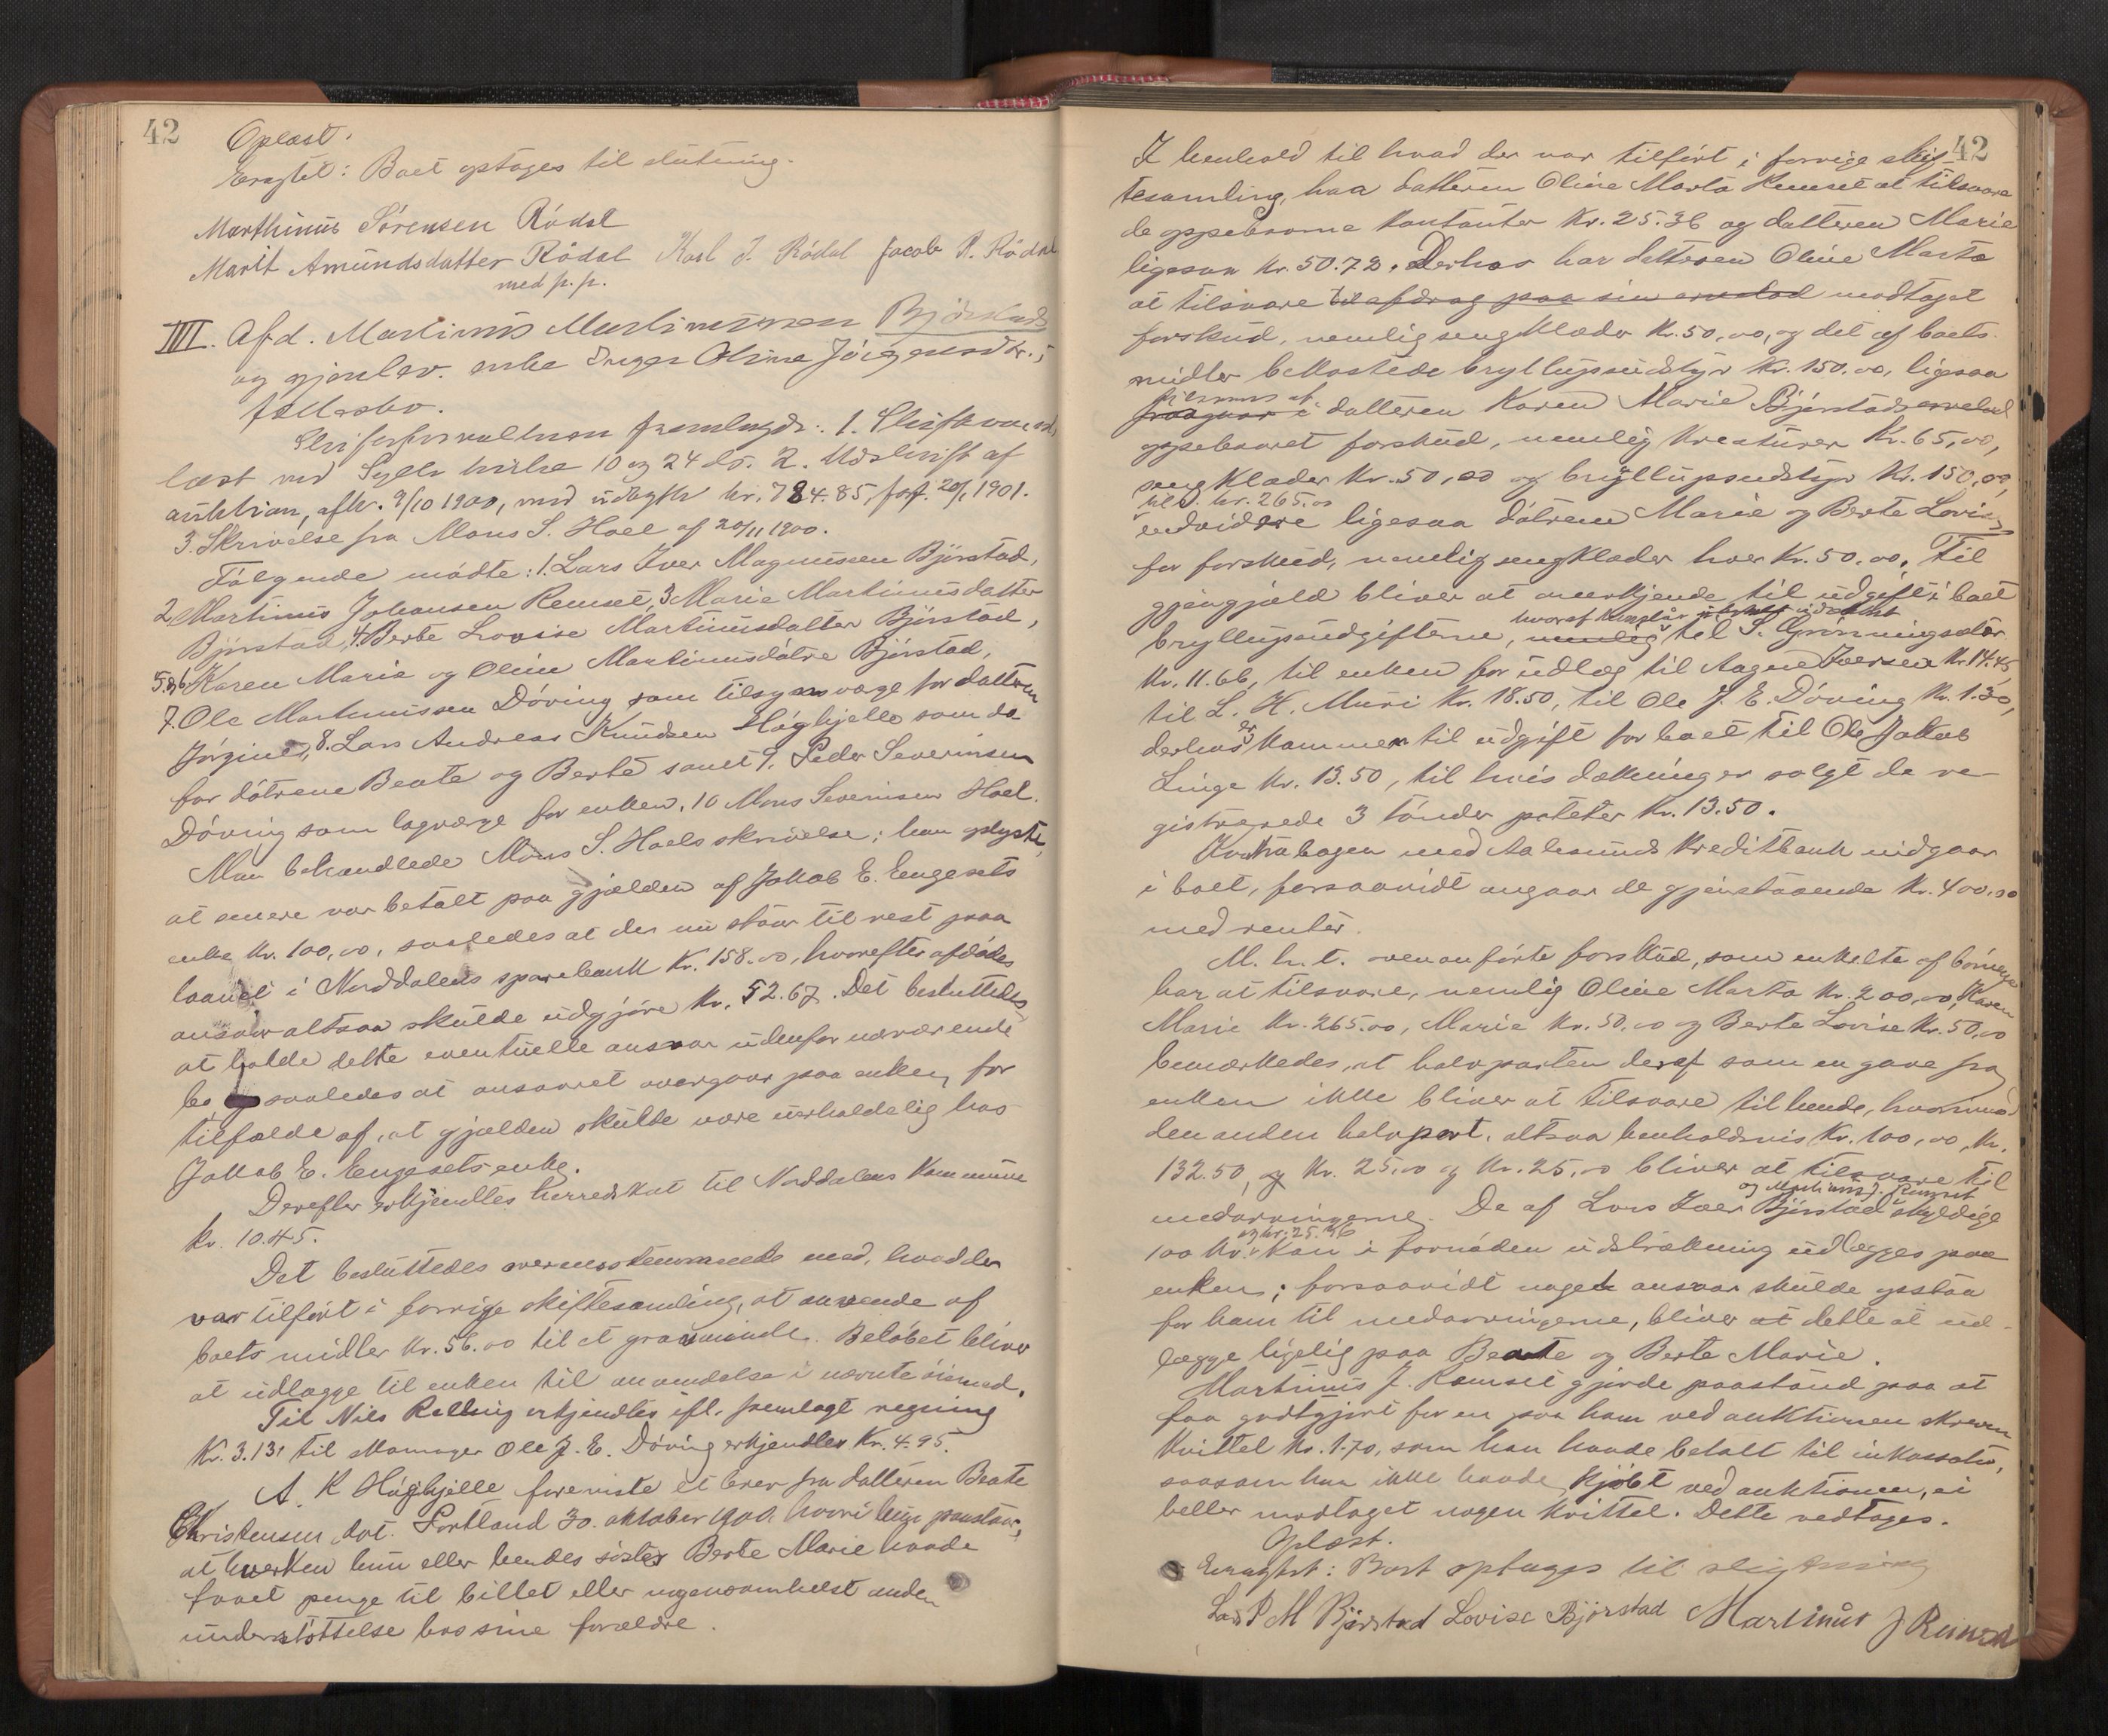 42
Oplæst.
Eragtet: Boet optages til slutning.
Marthinus Sørensen Rødal
Marit Amundsdatter Rödal Karl J. Rødal Jacob P. Rødal
med p. p.
IIII. Afd. Martinus Martinussen Bjørstads
og gjenlev. enke Inger Oline Jørgensdtr.s
fællesbo.
Skifteforvaltnon fremlagde: 1. Skiftevarsel
læst ved Sylte kirke 10 og 24 ds. 2. Udskrift af
auktion, afh. 9/10 1900, med udbytte kr. 784.85, forf. 20/1 1901.
3. Skrivelse fra Mons S. Hoel af 20/11 1900.
Følgende mødte: 1. Lars Iver Magnussen Bjørstad,
2. Martinus Johansen Remset, 3 Marie Martinusdatter
Bjørstad, 4. Berte Lovise Martinusdatter Bjørstad,
5. og 6. Karen Marie og Oline Martinusdøtre Bjørstad,
7. Ole Martinussen Døving som tilsynsværge for datteren
Jørgine, 8. Lars Andreas Knudsen Høghjelle som do
for døtrene Beate og Berte samt 9. Peder Severinsen
Døving som lagværge for enken. 10 Mons Severinsen Hoel.
Man behandlede Mons S. Hoels skrivelse; han oplyste,
at senere var betalt paa gjælden af Jakob E. Engesets
enke kr. 100,00, saaledes at der nu staar til rest paa
laanet i Norddalens sparebank kr. 158.00, hvorefter afdødes
ansvar altsaa skulde udgjøre kr. 52.67. Det besluttedes
at holde dette eventuelle ansvar udenfor nærværende
bo, saaledes at ansvaret overgaar paa enken, for
tilfælde af, at gjælden skulde være uerholdelig hos
Jakob E. Engesets enke.
Derefter erkjendtes herredskat til Norddalens kommune
kr. 10.45.
Det besluttedes overensstemmende med, hvad der
var tilført i forrige skiftesamling, at anvende af
boets midler kr. 56.00 til et gravminde. Beløbet bliver
at udlægge til enken til anvendelse i nævnte øiemed.
Til Nils Relling erkjendtes ifl. fremlagt regning
kr. 3.13, til Mamager Ole J. E. Døving erkjendtes kr. 4.95.
A. K Høghjelle foreviste et brev fra datteren Beate
Christensen, dat. Portland 30. oktober 1900, hvori hun paastaar,
at hverken hun eller hendes søster Berte Marie havde
faaet penge til billet eller nogensomhelst anden
understøttelse hos sine forældre.
42
I henhold til hvad der var tilført i forrige skif-
tesamling, har datteren Oline Marta Remset at tilsvare
de oppebaarne kontanter kr. 25.36 og datteren Marie
ligesaa kr. 50.72. Derhos har datteren Oline Marta
at tilsvare til afdrag paa sin arvelod modtaget
forskud, nemlig sengklæder kr. 50,00, og det af boets
midler bekostede bryllupsudstyr kr. 150.00, ligesaa
i datteren Karen Marie Bjørstads arvelod
oppebaaret forskud, nemlig kreaturer kr. 65,00,
sengklæder kr. 50,00 og bryllupsudstyr kr. 150,00,
tils. kr. 265.00
endvidere ligesaa døtrene Marie og Berte Lovise
for forskud, nemlig sengklæder hver kr. 50.00. Til
gjengjæld bliver at anerkjende til udgift i boet
bryllupsudgifterne, nemlig til S. Grønningsæter
kr. 11.66, til enken for udlæg til Aagne Iversen kr. 14.45,
til L. K. Muri kr. 18.50, til Ole J. E. Døving kr. 1.30,
derhos kommer til udgift for boet til Ole Jakob
Linge kr. 13.50, til hvis dækning er solgt de re-
gistrerede 3 tønder poteter kr. 13.50.
Kontrabogen med Aalesunds Kreditbank indgaar
i boet, forsaavidt angaar de gjenstaaende kr. 400.00
med renter.
M. h. t. ovenanførte forskud, som enkelte af børnene
har at tilsvare, nemlig Oline Marta kr. 200,00, Karen
Marie kr. 265.00, Marie kr. 50.00 og Berte Lovise kr. 50,00
bemærkedes, at halvparten deraf som en gave fra
enken ikke bliver at tilsvare til hende, hvorimod
den anden halvpart, altsaa henholdsvis kr. 100,00, kr.
132.50, og kr. 25,00 og kr. 25.00 bliver at tilsvare til
medarvingerne. De af Lars Iver Bjørstad og Martinus J. Remset skyldige
100 kr. og kr. 25.36 kan i fornøden udstrækning udlægges paa
enken; forsaavidt noget ansvar skulde opstaa
for ham til medarvingerne, bliver at dette at ud-
lægge ligelig paa Beate og Berte Marie.
Martinus J. Remset gjorde paastand paa at
faa godtgjort for en paa ham ved auktionen skreven
kvittel kr. 1.70, som han havde betalt til inkassator,
saasom han ikke havde kjøbt ved auktionen, ei
heller modtaget nogen kvittel. Dette vedtoges.
Oplæst.
Eragtet: Boet optages til slutning
Lars I M Bjørstad Lovise Bjørstad Martinus J Remset